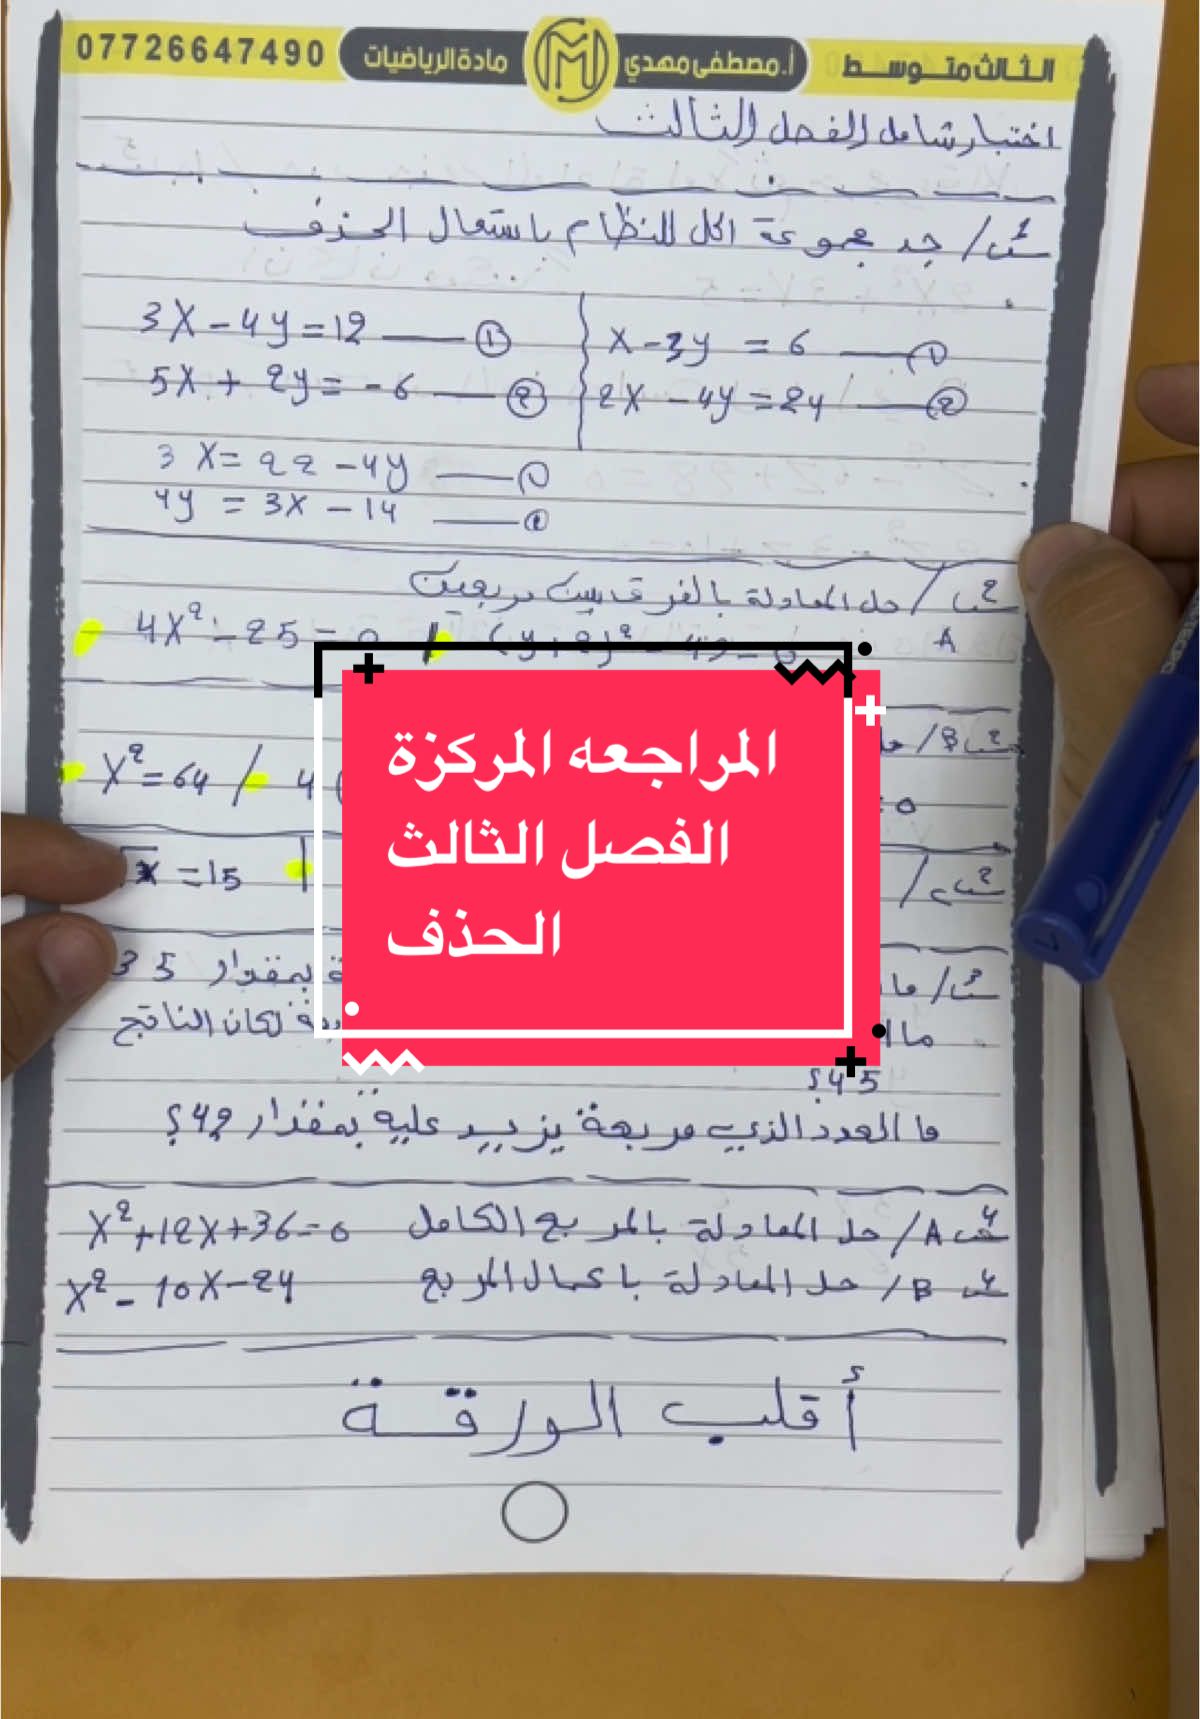 الثالث متوسط أ.مصطفى مهدي مادة الرياضيات 07726647490
اختبار شامل الفصل الثالث
س1/ جد مجموعة الحل للنظام باستعمال الحذف
3X - 4y = 12 —— ①
x - 3y = 6 —— ①
5X + 2y = -6 —— ②
2X - 4y = 24 —— ②
3X = 22 - 4y —— ①
4y = 3X - 14 —— ②
س2/ حل المعادلة بالفرق بين مربعين
A
4X² - 25 = 0
س2 B/
X² = 64 / 4
= 0
س2 /
= 15
س3/ ما
بمقدار 35
ما
لكان الناتج
45؟
ما العدد الذي مربعة يزيد علية بمقدار 42؟
س4 A/ حل المعادلة بالمربع الكامل X² + 12X + 36 = 0
س4 B/ حل المعادلة باكمال المربع X² - 10X - 24
أقلب الورقة
المراجعه المركزة
الفصل الثالث
الحذف